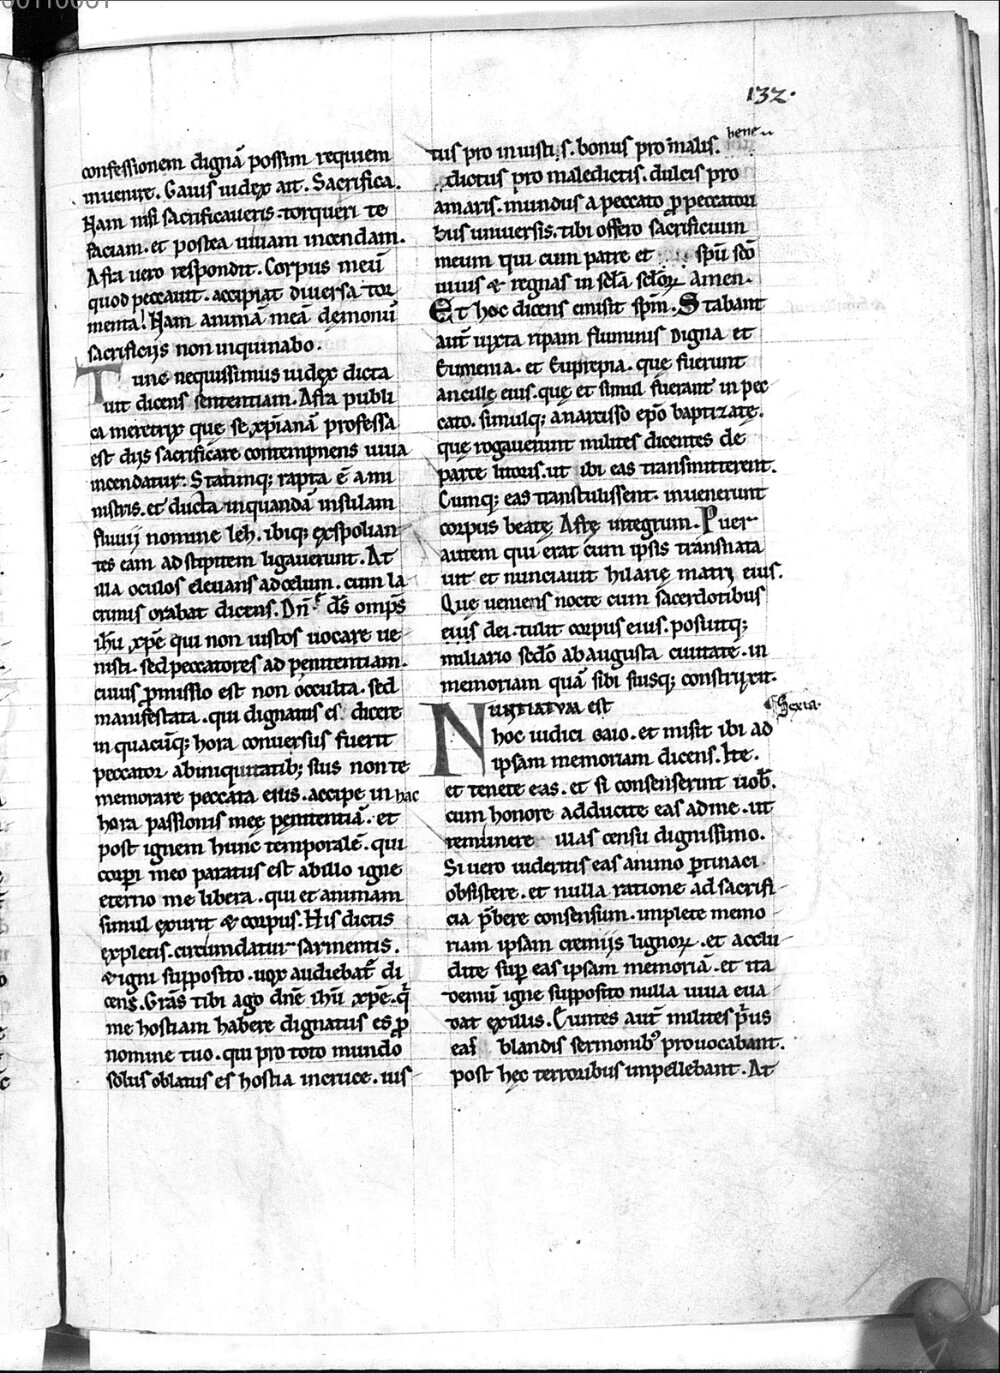 132.
confessionem dignā possim requiem
inuenire. Gaius iudex ait. Sacrifica.
Nam nisi sacrificaueris. torqueri te
faciam. et postea uiuam incendam.
Afra uero respondit. Corpus meū
quod peccauit. accipiat diuersa tor
menta! Nam animā meā demoniū
sacrificijs non inquinabo.
Tunc nequissimus iudex dicta
uit dicens sententiam. Afra publi
ca meretrix quę se xp̄ianā professa
est dijs sacrificare contempnens uiua
incendatur. Statimq; rapta ē a mi
nistris. et ducta in quandā insulam
fluuij nomine leh. ibiq; exspolian
tes eam ad stipitem ligauerunt. At
illa oculos eleuans ad celum. cum la
crimis orabat dicens. Dn̄e ds̄ omp̄s
ih̄u xp̄e qui non iustos uocare ue
nisti. sed peccatores ad penitentiam.
cuius p̄missio est non occulta. sed
manifestata. qui dignatus es dicere
in quacūq; hora conuersus fuerit
peccator ab iniquitatib; suis non te
memorare peccata eius. accipe in hac
hora passionis meę penitentiā. et
post ignem hunc temporalē. qui
corpi meo paratus est ab illo igne
eterno me libera. qui et animam
simul exurit & corpus. His dictis
expletis. circumdatur sarmentis.
& igni supposito. uox audiebat̄ di
cens. Grās tibi ago dn̄e ih̄u xp̄e. q̄
me hostiam habere dignatus es p
nomine tuo. qui pro toto mundo
solus oblatus es hostia in cruce. ius
tus pro iniustis. bonus pro malis. bene
dictus pro maledictis. dulcis pro
amaris. mundus a peccato p peccatori
bus uniuersis. tibi offero sacrificium
meum qui cum patre et sp̄u sc̄o
uiuis & regnas in sc̄la sc̄lor̄ amen.
Et hoc dicens emisit sp̄m. Stabant
aut̄ iuxta ripam fluminis Digna et
Eumenia. et Euprepia. que fuerunt
ancille eius. quę et simul fuerant in pec
cato. simulq; a narcisso ep̄o baptizatę.
quę rogauerunt milites dicentes de
parte litoris. ut ibi eas transmitterent.
Cumq; eas transtulissent. inuenerunt
corpus beatę Afrę integrum. Puer
autem qui erat cum ipsis transnata
uit et nunciauit hilarię matri eius.
Que ueniens nocte cum sacerdotibus
eius dei. tulit corpus eius. posuitq;
miliario sc̄do ab augusta ciuitate. in
memoriam quā sibi suisq; construxit.
Nuntiatum est
Sexta.
hoc iudici Gaio. et misit ibi ad
ipsam memoriam dicens. Ite.
et tenete eas. et si consenserint uob̄.
cum honore adducite eas ad me. ut
remunere illas censu dignissimo.
Si uero uideritis eas animo ptinaci
obsistere. et nulla ratione ad sacrifi
cia p̄bere consensum. implete memo
riam ipsam cremijs lignor̄. et acclu
dite sup eas ipsam memoriā. et ita
demū igne supposito nulla uiua eua
dat ex illis. Euntes aut̄ milites p̄us
eas blandis sermonib; prouocabant.
post hęc terroribus impellebant. At